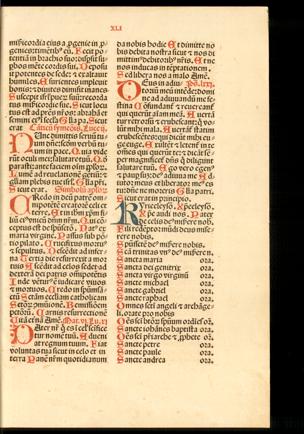 XLI
misericordia eius a pgenie in p
genies timentib9 eū. Fecit po-
tentiā in brachio suo: dispsit su-
pbos mēte cordis sui. Deposu
it potentes de sede: et exaltauit
humiles. Esurientes impleuit
bonis: et diuites dimisit inanes
Suscepit isrl' puer suū: recorda
tus misericordie sue. Sicut locu
tus est ad pres nrōs: abraā et
semini ei9 i secla. Glia pri. Sicut
erat Canticū symeonis. Luce.ij.
Nunc dimittis seruū tu-
um dne: scdm verbū tu-
um in pace. Quia vide
rūt oculi mei: salutare tuū. Qđ
parasti: ante faciem oīm pplor.
Lumē ad reuelationē gētiū: et
gliam plebis tue isrl. Glia pri.
Sicut erat. Simbolū aplor
Credo in deū patrē om-
nipotētē creatorē celi et
terre. Et in ihm xpm fi-
liū ei9 vnicū dnm nrm. Qui cō-
ceptus est de spiritu scto. Nat9 ex
maria virgine. Passus sub pō-
tio pilato. Crucifixus mortu9
et sepultus. Descēdit ad infer-
na Tertia die resurrexit a mor
tuis Ascēdit ad celos sedet ad
dexterā dei patris omnipotētis
Inde vētur9 ē iudicare viuos
et mortuos. Credo in spūm sā-
ctū Sctam ecclīam catholicam
Sctor cōmunionē. Remissionē
pctorū. Carnis resurrectionē
Uitā eternā Amē. Mat.vi. Lu.xi
Pater nr q es ī cel' scifice
tur nomē tuū. Adueni
at regnum tuum. Fiat
voluntas tua sicut in celo et in
terra Panē nrm quotidianum
da nobis hodie Et dimitte no
bis debita nostra sicut et nos di
mittim9 debitorib9 nris. Et ne
nos inducas in tēptationem.
Sed libera nos a malo Amē.
Deus in adiu- Ps.lxix.
toriū meū intēde: domi
ne ad adiuuandū me fe
stina Cōfundāt et reuereant
qui querūt aīam meā. Auertā
tur retrorsū et erubescāt: q vo-
lūt mihi mala. Auertāt statim
erubescētes: qui dicūt mihi eu-
ge euge. Exultēt et letent in te
oēs qui querūt te: et dicāt sē-
per magnificet dns q diligunt
salutare tuū. Ego vero egen9
et paup sum: de9 adiuua me Ad
iutor meus et liberator me9 es
tu: dne ne moreris Glia patri.
Sicut erat in principio.
Kyrieeleyson. Xpeeleyson.
Xpe audi nos. Pater
de celis de9 misere nobis.
Fili redēptor mūdi deus mise-
rere nobis.
Spūs scte de9 miserere nobis.
Scta trinitas vn9 de9 misere n.
Sancta maria ora.
Sancta dei genitrix ora.
Sancta virgo virginū ora.
Sancte michael ora.
Sancte gabriel ora.
Sancte raphael ora.
Omnes sctī angeli et archāge-
li. orate pro nobis
Oēs sctī btōr spirituū ordīes or.
Sancte iohannes baptista ora.
Oēs sctī ptriarche et pphete or.
Sancte petre ora.
Sancte paule ora.
Sancte andrea ora.